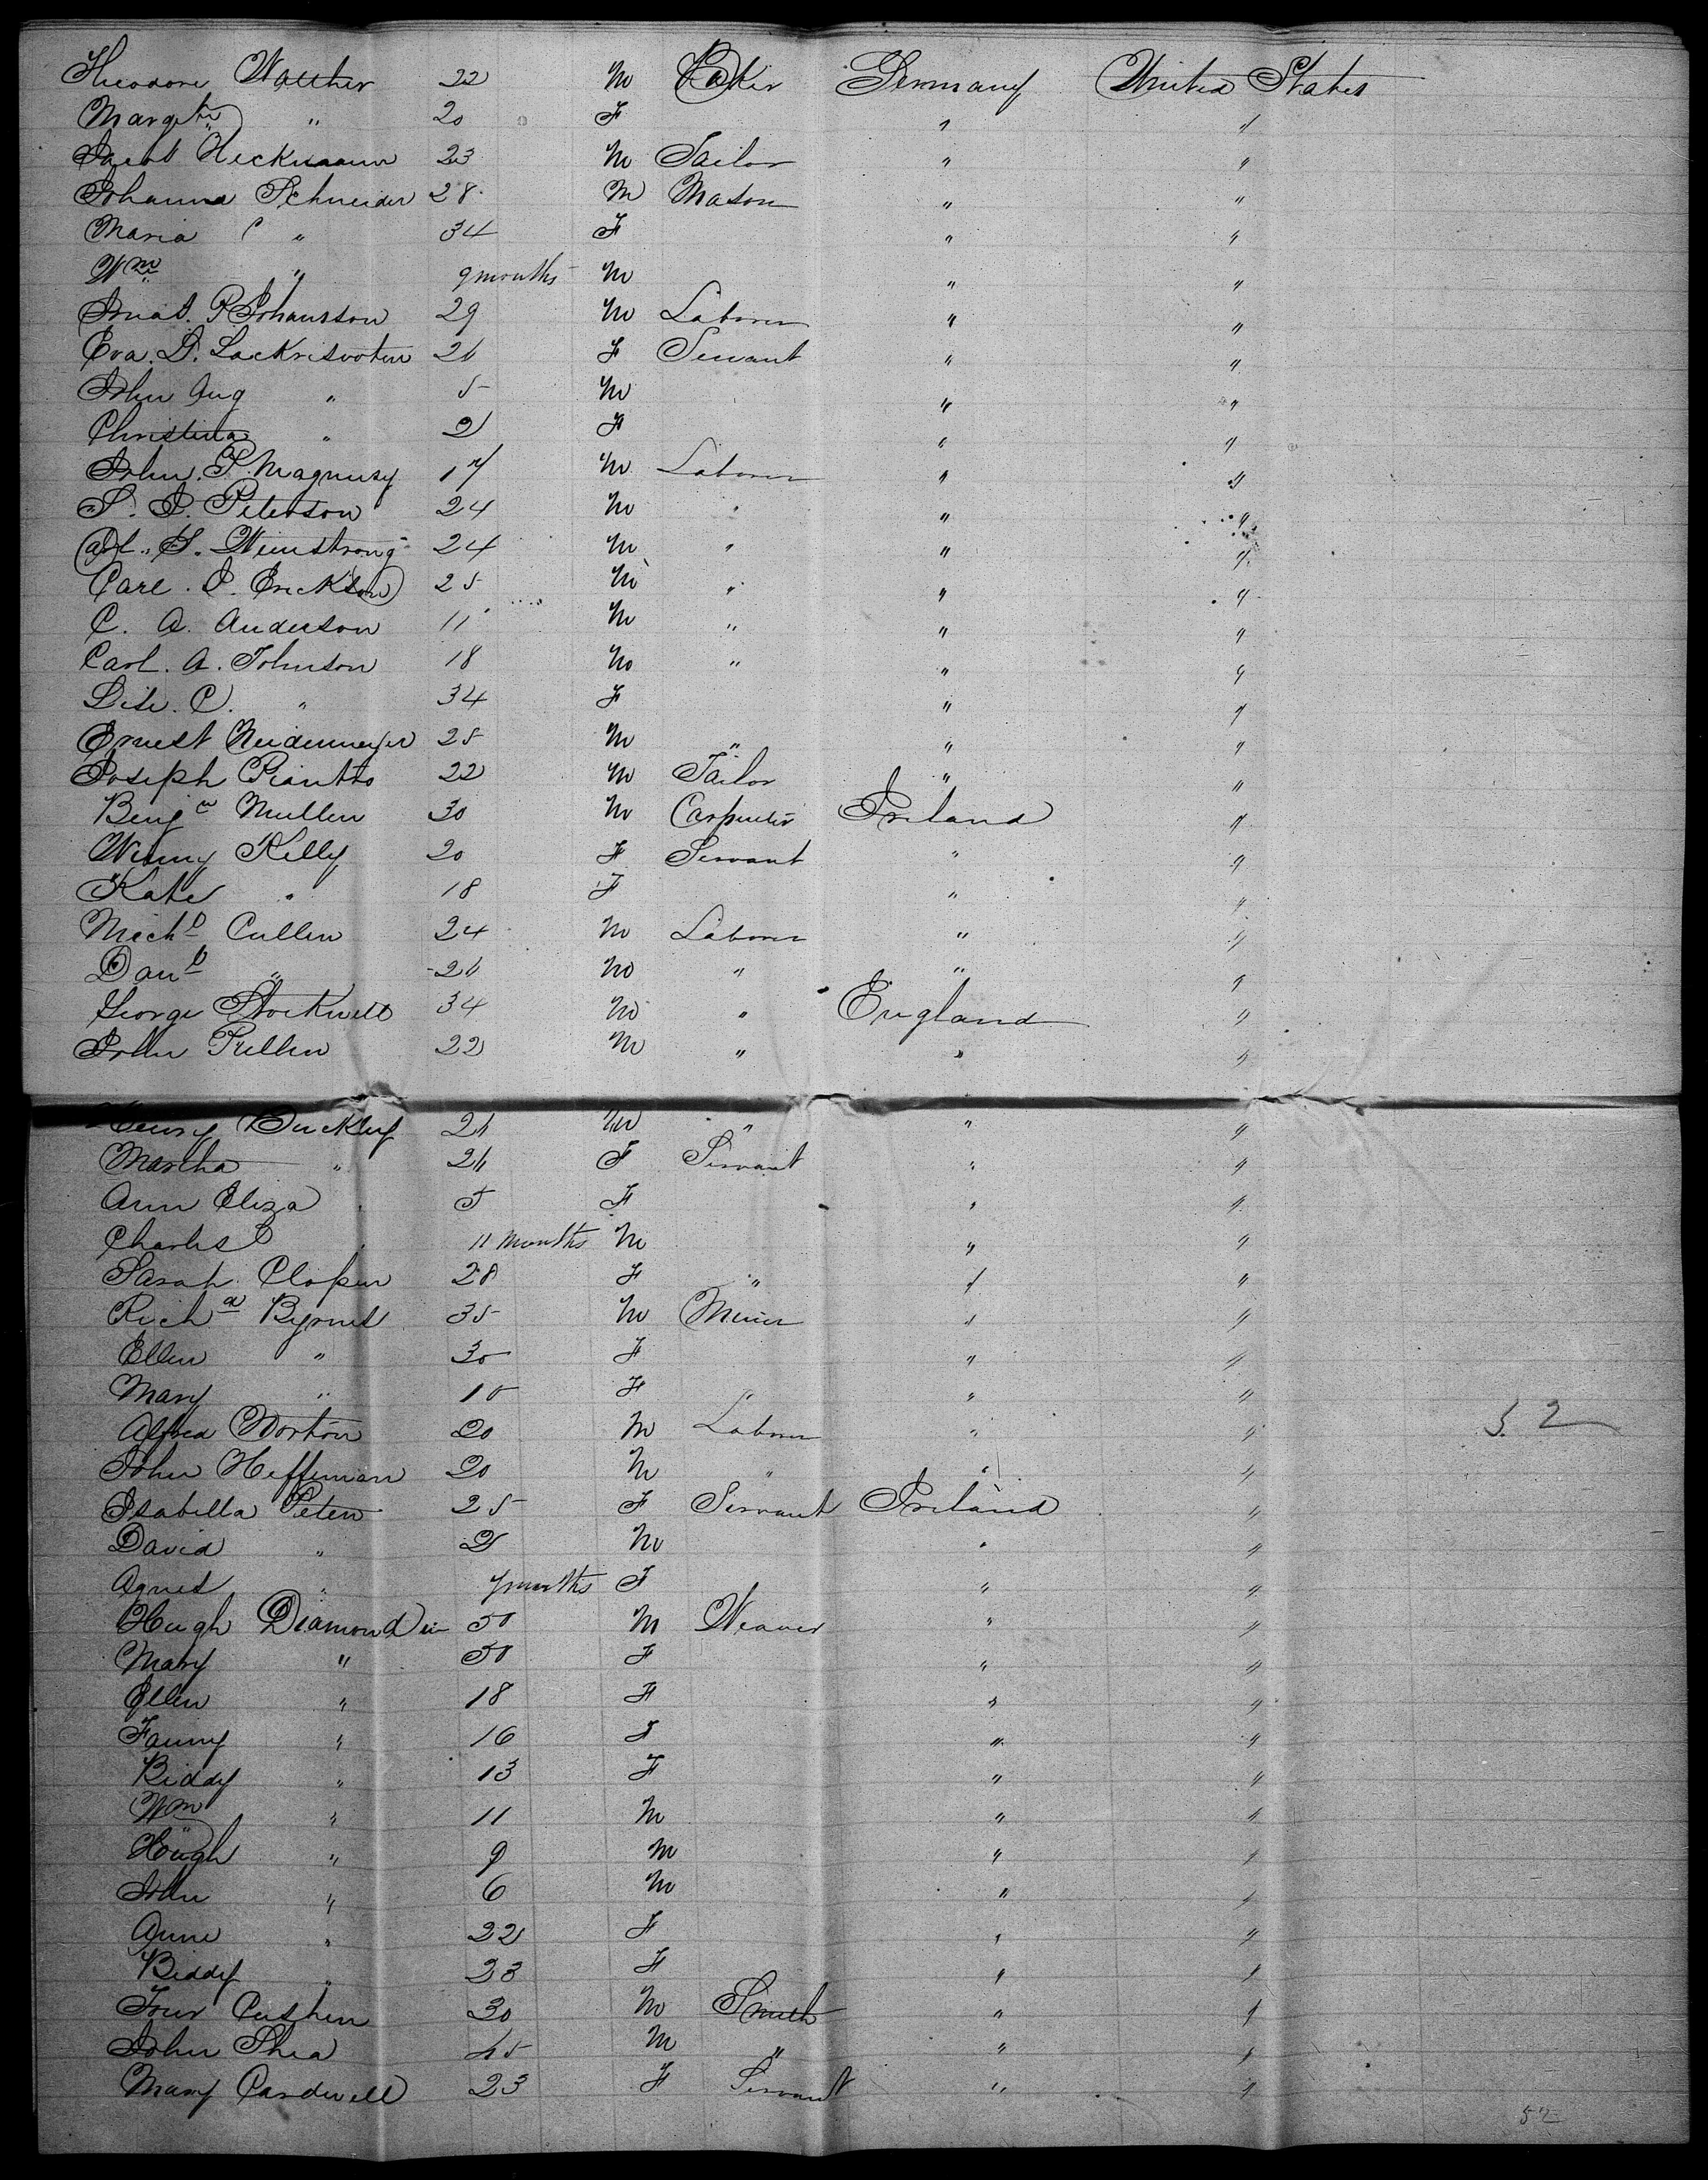 Theodore Walther 22 M Baker Germany United States
Margth " 20 F " "
Jacob Heckmann 23 M Tailor " "
Johanna Schneider 28 M Mason " "
Maria " 34 F " "
Wm " 9 months M " "
P Johansson 29 M Laborer " "
Eva. D. 26 F Servant " "
John Aug " 5 M " "
Christina " 2 F " "
John. P. Magnusy 17 M Laborer " "
S. P. Peterson 24 M " " "
S. 24 M " " "
Carl. J. Erickson 25 M " " "
C. A. Anderson 11 M " " "
Carl. A. Johnson 18 M " " "
C. " 34 F " "
Ernest Neidermeyer 25 M " " "
Joseph 22 M Tailor " "
Benjn Mullen 30 M Carpenter Ireland "
Winny Kelly 20 F Servant " "
Kate " 18 F " "
Michl Cullen 24 M Laborer " "
Danl " 26 M " " "
George Stockwell 34 M " England "
John Pullen 22 M " " "
Henry Buckley 26 M " " "
Martha " 26 F Servant " "
Ann Eliza " 5 F " "
Charles " 11 months M " "
Sarah 28 F " " "
Richd Byrnes 35 M Miner " "
Ellen " 30 F " "
Mary " 10 F " "
Alfred Norton 20 M Laborer " "
John Heffernan 20 M " " "
Isabella Peters 25 F Servant Ireland "
David " 2 M " "
Agnes " 7 months F " "
Hugh Diamond 50 M Weaver " "
Mary " 50 F " "
Ellen " 18 F " "
Fanny " 16 F " "
Biddy " 13 F " "
Wm " 11 M " "
Hugh " 9 M " "
John " 6 M " "
Anne " 22 F " "
Biddy " 23 F " "
Cushen 30 M Smith " "
John Shea 45 M " " "
Mary Cardwell 23 F Servant " "
52
52